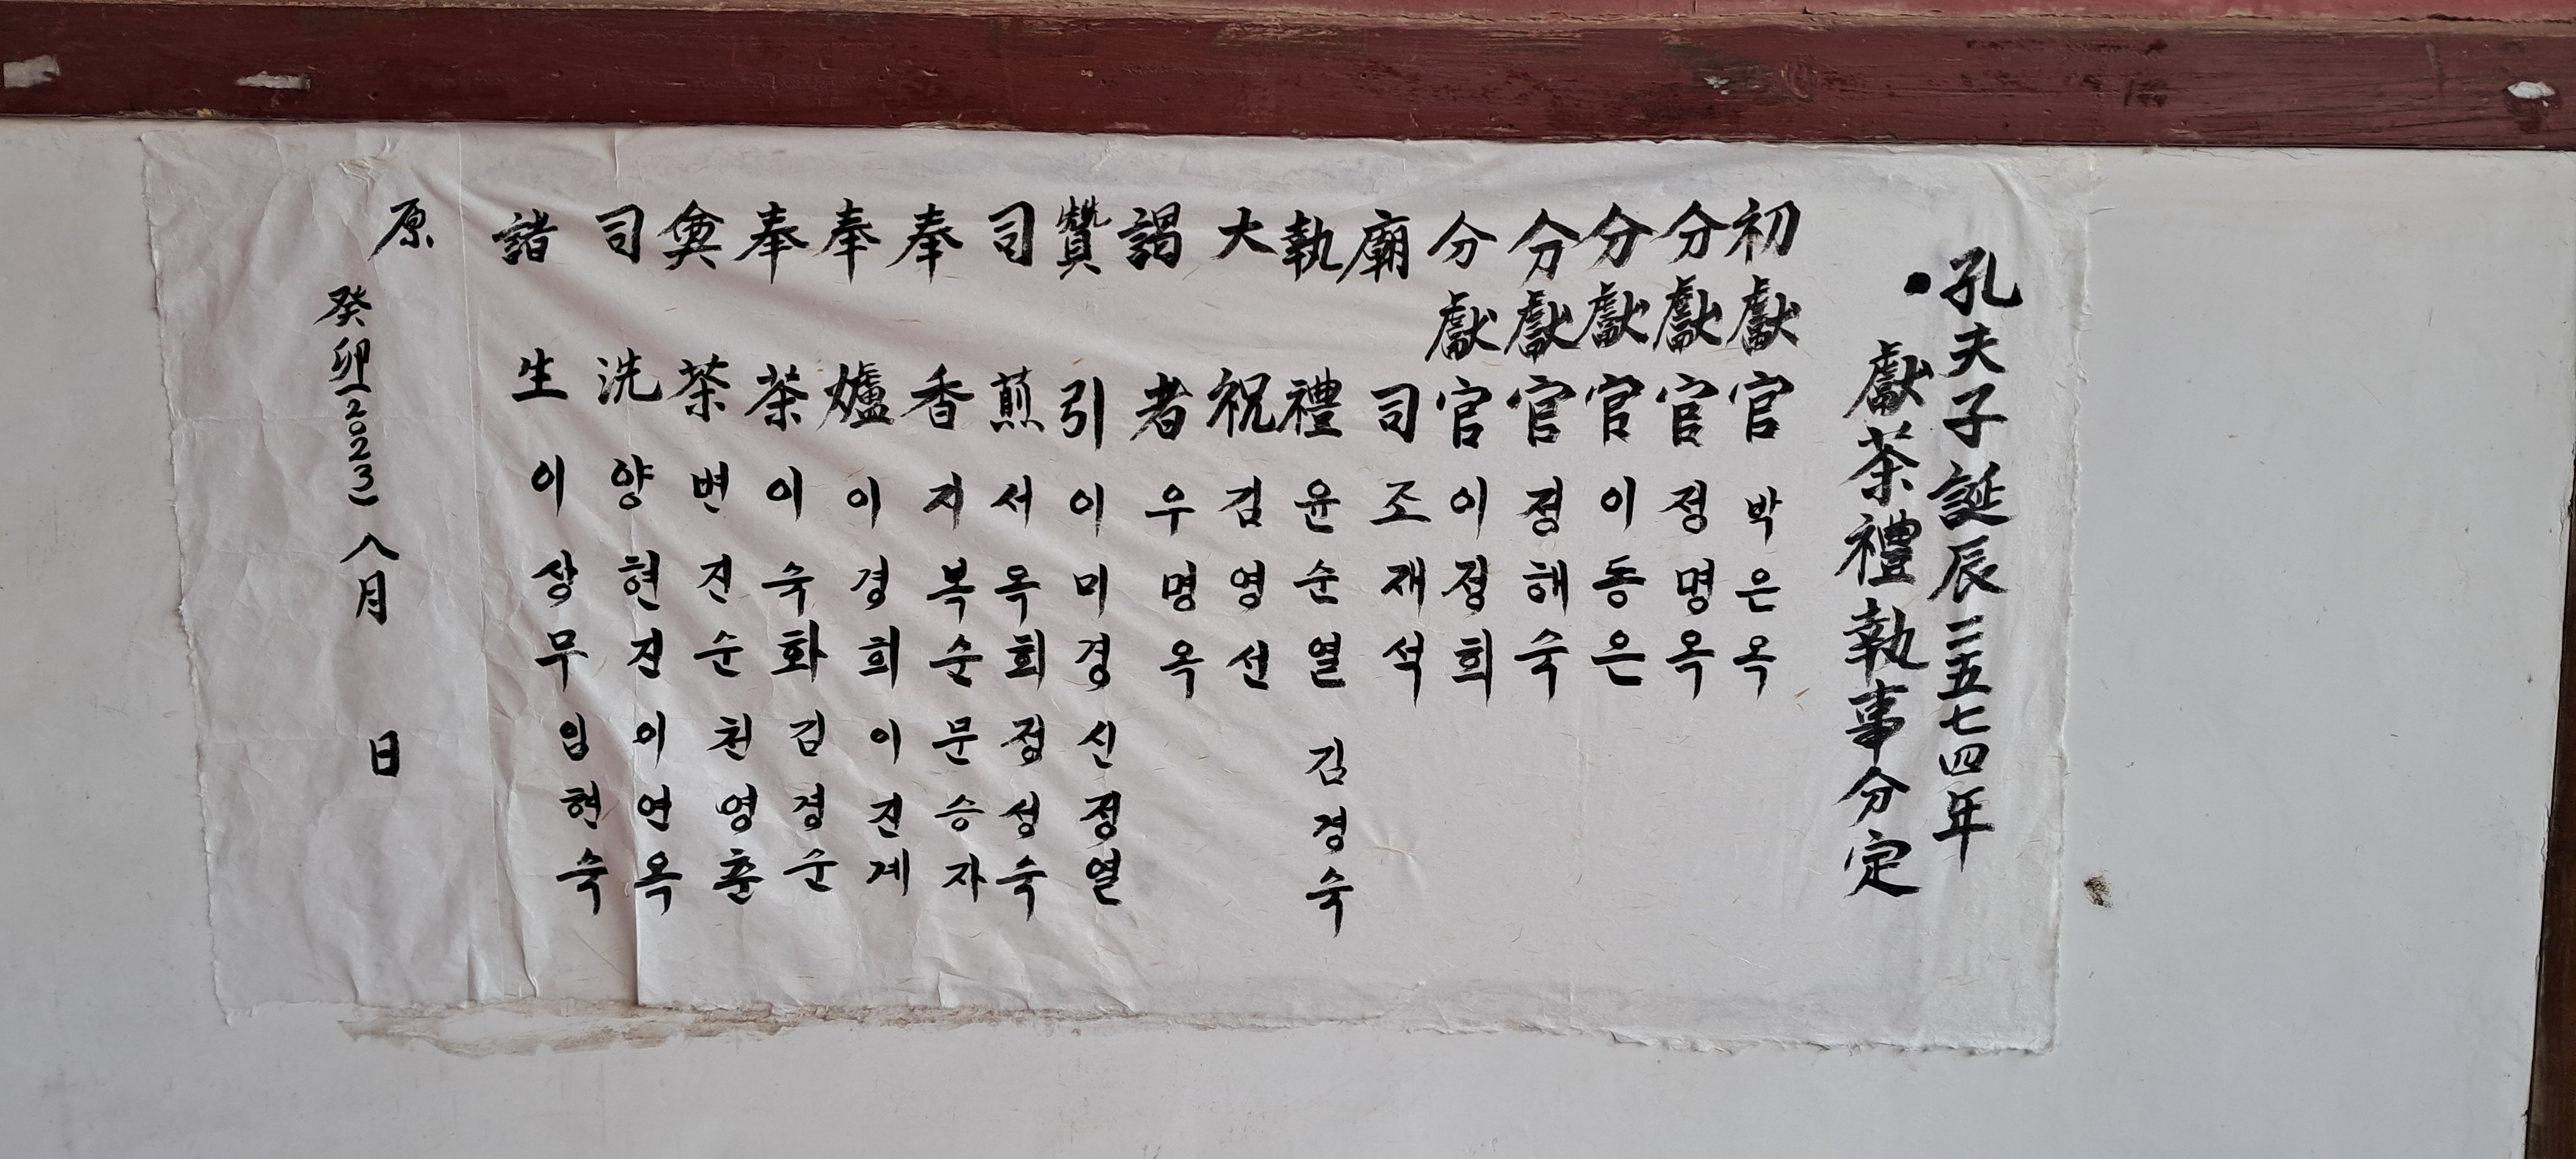 孔夫子誕辰二五七四年
•獻茶禮執事分定
初獻官 박은옥
分獻官 정명옥
分獻官 이동은
分獻官 정해숙
分獻官 이정희
廟司 조재석
執禮 윤순열 김경숙
大祝 김영선
謁者 우명옥
贊引 이미경 신정열
司煎 서옥희 정성숙
奉香 지복순 문승자
奉爐 이경희 이진계
奉茶 이숙화 김경순
奠茶 변진순 천영춘
司洗 양현진 이연옥
諸生 이상무 임현숙
原
癸卯(2023) 八月 日